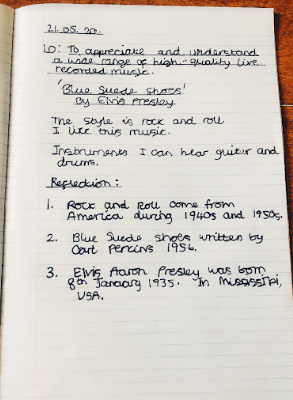 21.05.20.
LO: To appreciate and understand
a wide range of high-quality live
recorded music.
'Blue Suede Shoes'
By Elvis Presley
The style is rock and roll
I like this music.
Instruments I can hear guitar and
drums.
Reflection:
1. Rock and Roll came from
America during 1940s and 1950s.
2. Blue Suede Shoes written by
Carl Perkins 1956.
3. Elvis Aaron Presley was born
8th January 1935. In Mississippi,
USA.